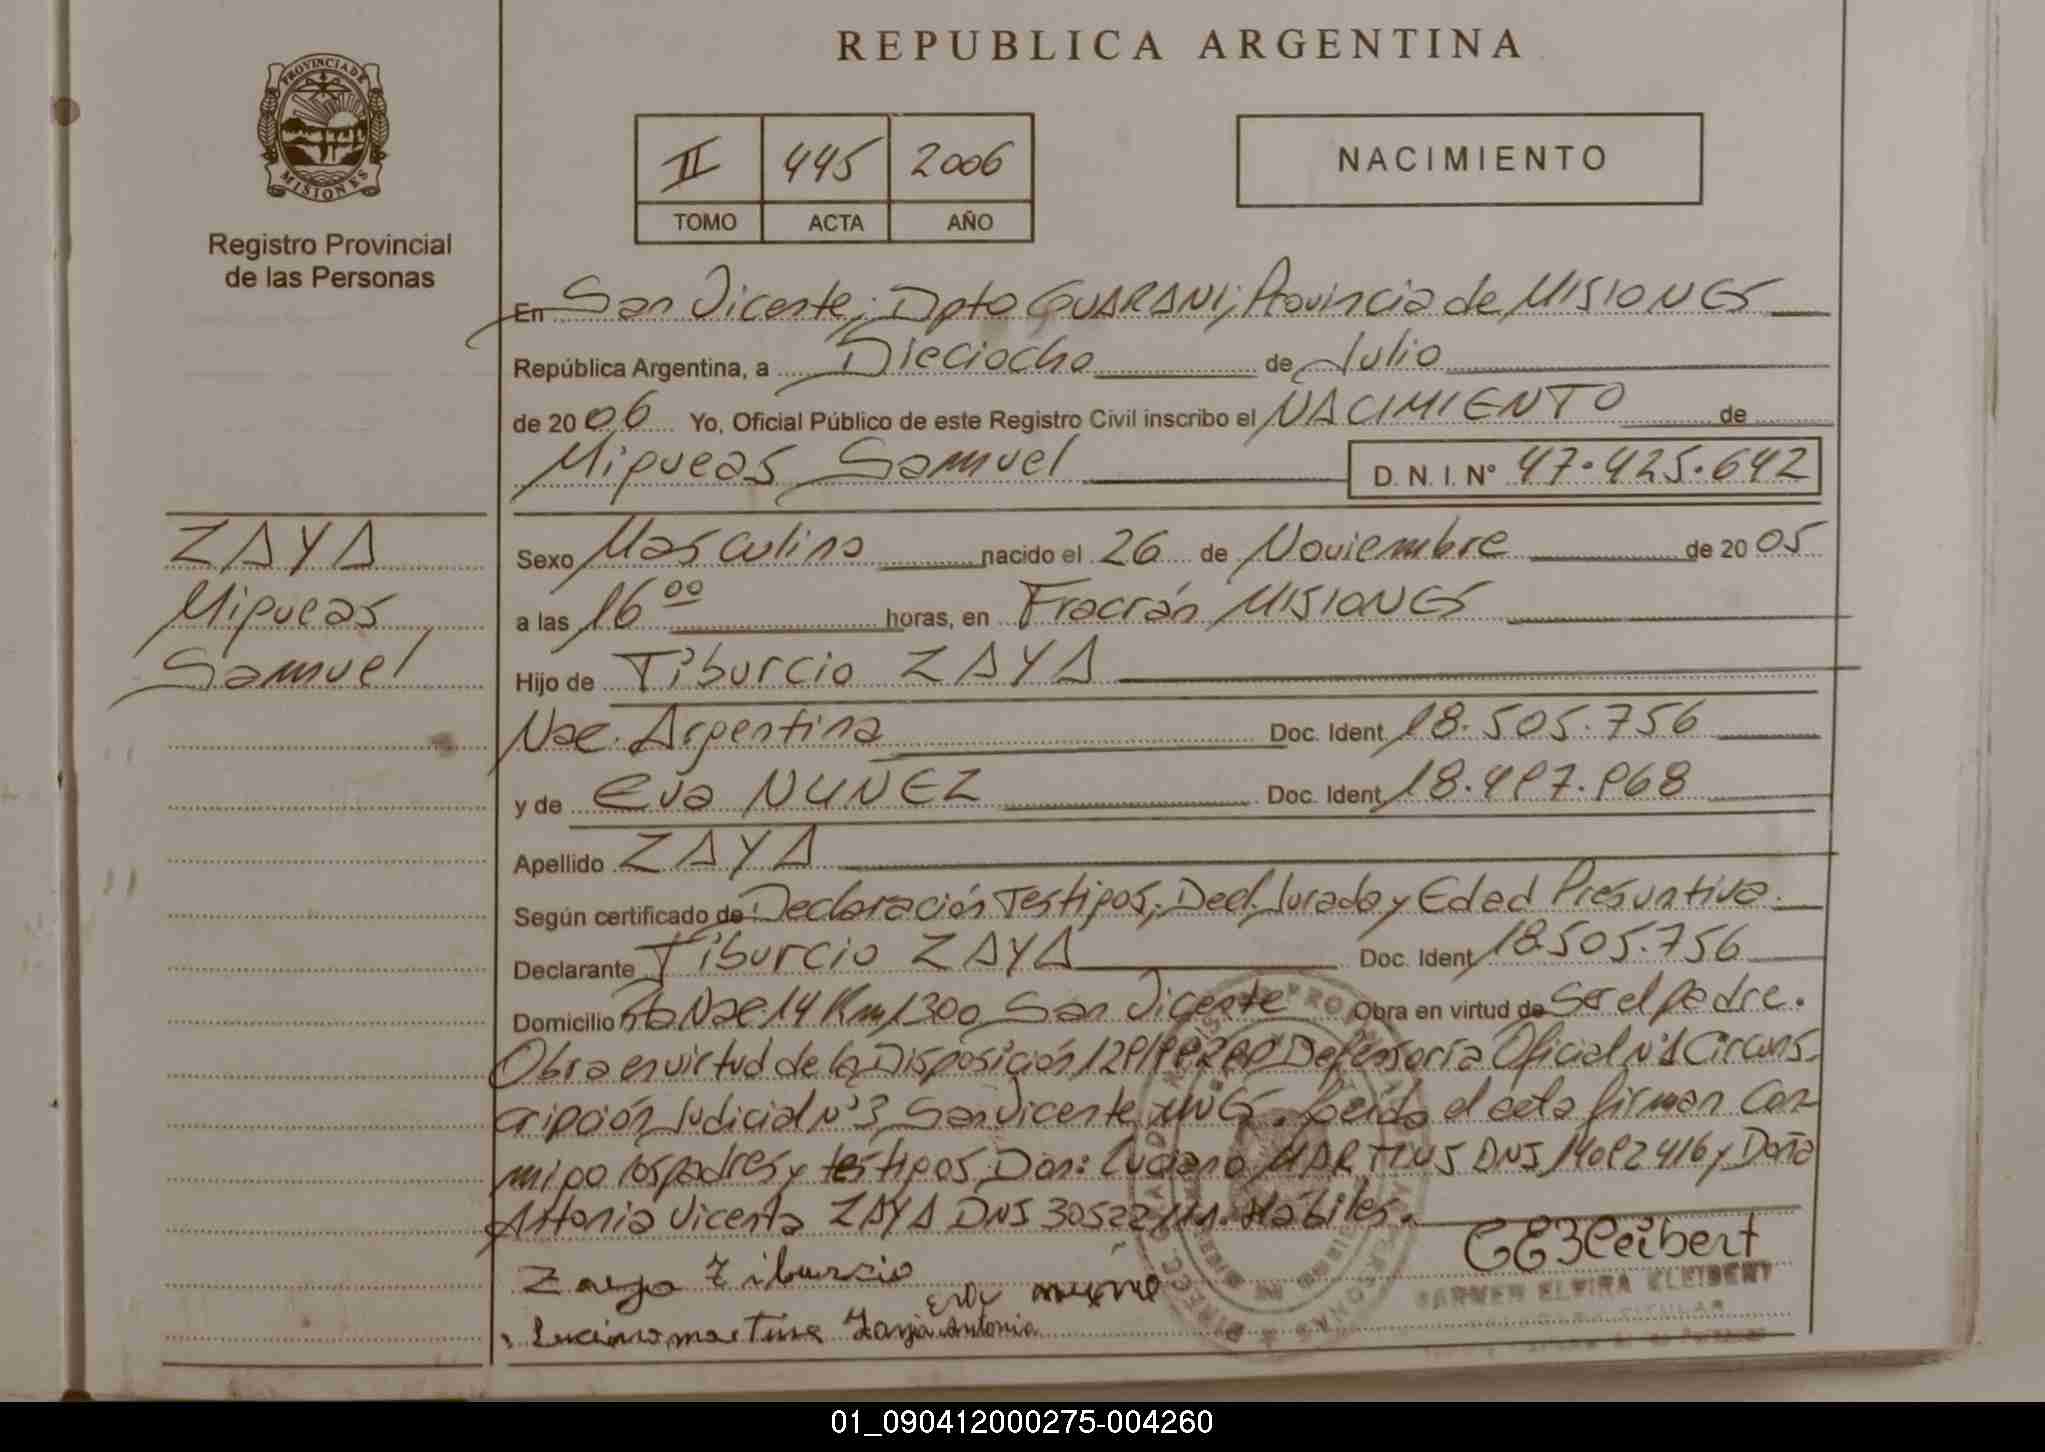 REPUBLICA ARGENTINA
PROVINCIA DE
MISIONES
Registro Provincial
de las Personas
II 445 2006
TOMO ACTA AÑO
NACIMIENTO
En San Vicente; Dpto GUARANI; Provincia de MISIONES
República Argentina, a Dieciocho de Julio
de 2006 Yo, Oficial Público de este Registro Civil inscribo el NACIMIENTO de
Miqueas Samuel D. N. I. N° 47.425.642
ZAYA
Miqueas
Samuel
Sexo Masculino nacido el 26 de Noviembre de 2005
a las 16 00 horas, en Fracrán MISIONES
Hijo de Tiburcio ZAYA
Nac. Argentina Doc. Ident. 18.505.756
y de Eva NUNEZ Doc. Ident.
Apellido ZAYA
Según certificado de Declaración Testigos, Decl. Jurada y Edad Presuntiva.
Declarante Tiburcio ZAYA Doc. Ident. 18.505.756
Domicilio Rta Nac 14 Km 1300 San Vicente Obra en virtud de Ser el padre.
Obra en virtud de la Disposición Defensoría Oficial N°1 Circuns-
cripción Judicial N°3 San Vicente Leída el acta firman con-
migo los padres y testigos Don: Luciano MARTINS DNI y Doña
Antonia Vicenta ZAYA DNI Hábiles.
Zaya Tiburcio
Eva
Luciano Martins Zaya Antonia
CEKleibert
CARMEN ELVIRA KLEIBERT
01_090412000275-004260